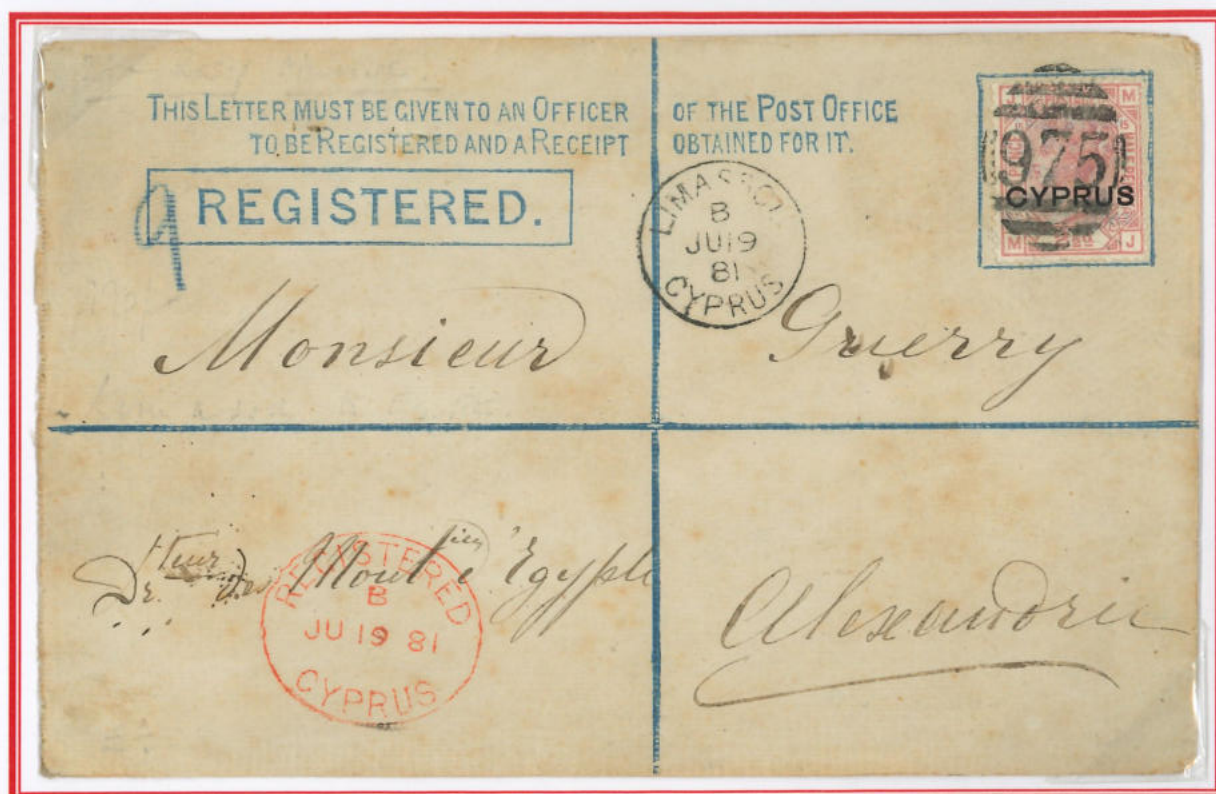 THIS LETTER MUST BE GIVEN TO AN OFFICER OF THE POST OFFICE
TO BE REGISTERED AND A RECEIPT OBTAINED FOR IT.
REGISTERED.
9
LIMASSOL
B
JU 19
81
CYPRUS
M
975
CYPRUS
M J
Monsieur Guerry
Dr. des Egypte
REGISTERED
B
JU 19 81
CYPRUS
Alexandrie